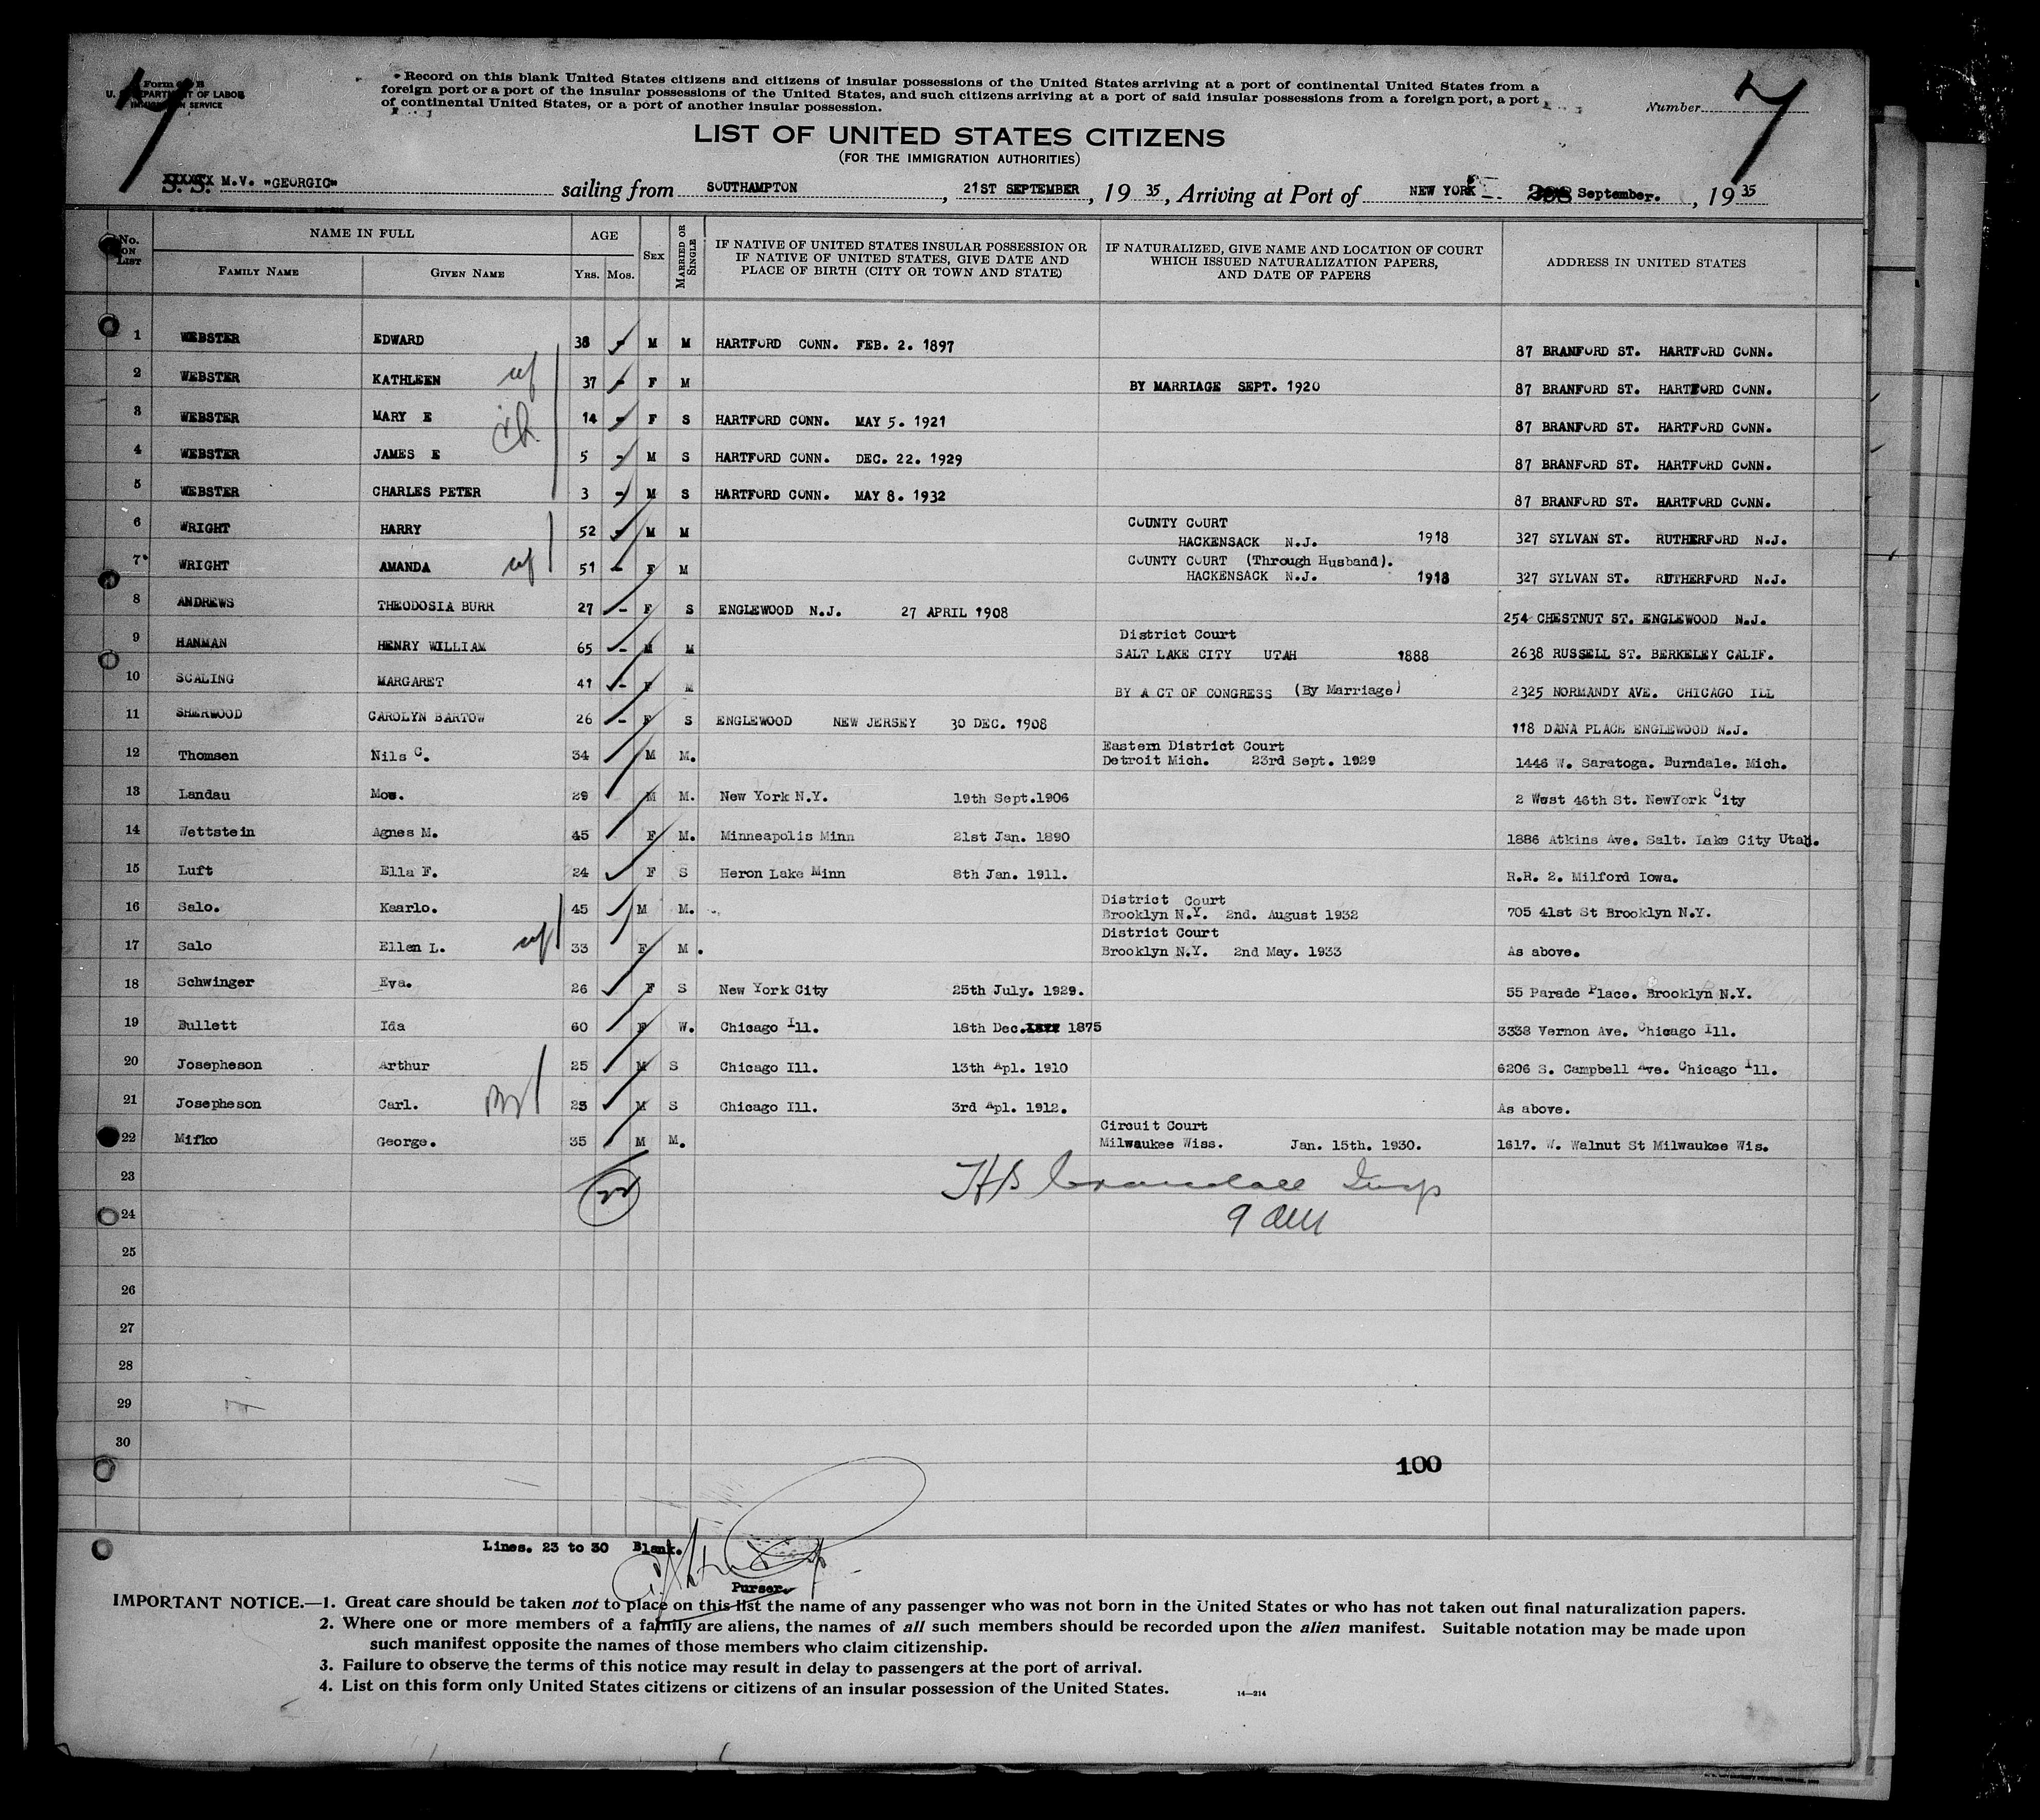 7
Form 630 B
U. S. DEPARTMENT OF LABOR
IMMIGRATION SERVICE
Record on this blank United States citizens and citizens of insular possessions of the United States arriving at a port of continental United States from a
foreign port or a port of the insular possessions of the United States, and such citizens arriving at a port of said insular possessions from a foreign port, a port
of continental United States, or a port of another insular possession.
Number 7
LIST OF UNITED STATES CITIZENS
(FOR THE IMMIGRATION AUTHORITIES)
S. S. M.V. "GEORGIC" sailing from SOUTHAMPTON, 21ST SEPTEMBER, 19 35, Arriving at Port of NEW YORK September. , 19 35
No. on List NAME IN FULL AGE SEX MARRIED OR SINGLE IF NATIVE OF UNITED STATES INSULAR POSSESSION OR IF NATIVE OF UNITED STATES, GIVE DATE AND PLACE OF BIRTH (CITY OR TOWN AND STATE) IF NATURALIZED, GIVE NAME AND LOCATION OF COURT WHICH ISSUED NATURALIZATION PAPERS, AND DATE OF PAPERS ADDRESS IN UNITED STATES
FAMILY NAME GIVEN NAME YRS. MOS.
1 WEBSTER EDWARD 38 - M M HARTFORD CONN. FEB. 2. 1897 87 BRANFORD ST. HARTFORD CONN.
2 WEBSTER KATHLEEN wf 37 - F M BY MARRIAGE SEPT. 1920 87 BRANFORD ST. HARTFORD CONN.
3 WEBSTER MARY E ch 14 - F S HARTFORD CONN. MAY 5. 1921 87 BRANFORD ST. HARTFORD CONN.
4 WEBSTER JAMES E 5 - M S HARTFORD CONN. DEC. 22. 1929 87 BRANFORD ST. HARTFORD CONN.
5 WEBSTER CHARLES PETER 3 - M S HARTFORD CONN. MAY 8. 1932 87 BRANFORD ST. HARTFORD CONN.
6 WRIGHT HARRY 52 - M M COUNTY COURT
HACKENSACK N.J. 1918 327 SYLVAN ST. RUTHERFORD N.J.
7 WRIGHT AMANDA wf 51 - F M COUNTY COURT (Through Husband).
HACKENSACK N.J. 1918 327 SYLVAN ST. RUTHERFORD N.J.
8 ANDREWS THEODOSIA BURR 27 - F S ENGLEWOOD N.J. 27 APRIL 1908 254 CHESTNUT ST. ENGLEWOOD N.J.
9 HANMAN HENRY WILLIAM 65 - M M District Court
SALT LAKE CITY UTAH 1888 2638 RUSSELL ST. BERKELEY CALIF.
10 SCALING MARGARET 41 - F M BY A CT OF CONGRESS (By Marriage) 2325 NORMANDY AVE. CHICAGO ILL
11 SHERWOOD CAROLYN BARTOW 26 - F S ENGLEWOOD NEW JERSEY 30 DEC. 1908 118 DANA PLACE ENGLEWOOD N.J.
12 Thomsen Nils C. 34 M M. Eastern District Court
Detroit Mich. 23rd Sept. 1929 1446 W. Saratoga. Burndale. Mich.
13 Landau Moe. 29 M M. New York N.Y. 19th Sept.1906 2 West 46th St. NewYork City
14 Wettstein Agnes M. 45 F M. Minneapolis Minn 21st Jan. 1890 1886 Atkins Ave. Salt. Lake City Utah.
15 Luft Ella F. 24 F S Heron Lake Minn 8th Jan. 1911. R.R. 2. Milford Iowa.
16 Salo. Kaarlo. 45 M M. District Court
Brooklyn N.Y. 2nd. August 1932 705 41st St Brooklyn N.Y.
17 Salo Ellen L. wf 33 F M. District Court
Brooklyn N.Y. 2nd May. 1933 As above.
18 Schwinger Eva. 26 F S New York City 25th July. 1929. 55 Parade Place. Brooklyn N.Y.
19 Bullett Ida 60 F W. Chicago Ill. 18th Dec. 1875 3338 Vernon Ave. Chicago Ill.
20 Josepheson Arthur 25 M S Chicago Ill. 13th Apl. 1910 6206 S. Campbell Ave. Chicago Ill.
21 Josepheson Carl. 23 M S Chicago Ill. 3rd Apl. 1912. As above.
22 Mifko George. 35 M M. Circuit Court
Milwaukee Wiss. Jan. 15th. 1930. 1617. W. Walnut St Milwaukee Wis.
23 22 HB Crandall Insp
24 9 AM
25
26
27
28
29
30
100
Lines. 23 to 30 Blank.
Purser.
IMPORTANT NOTICE.—1. Great care should be taken not to place on this list the name of any passenger who was not born in the United States or who has not taken out final naturalization papers.
2. Where one or more members of a family are aliens, the names of all such members should be recorded upon the alien manifest. Suitable notation may be made upon
such manifest opposite the names of those members who claim citizenship.
3. Failure to observe the terms of this notice may result in delay to passengers at the port of arrival.
4. List on this form only United States citizens or citizens of an insular possession of the United States.
14—214